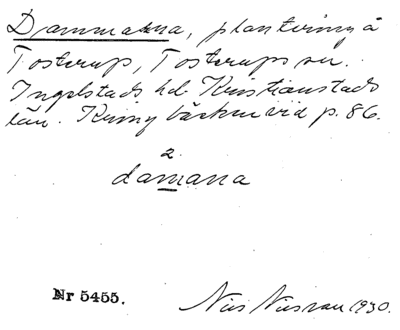 Dammarna, plantering å
Tosterup, Tosterups sn.
Ingelstads hd. Kristianstads
län. Kring bäcken vid p. 86.
2
damana
Nr 5455.
Nils Nilsson 1930.